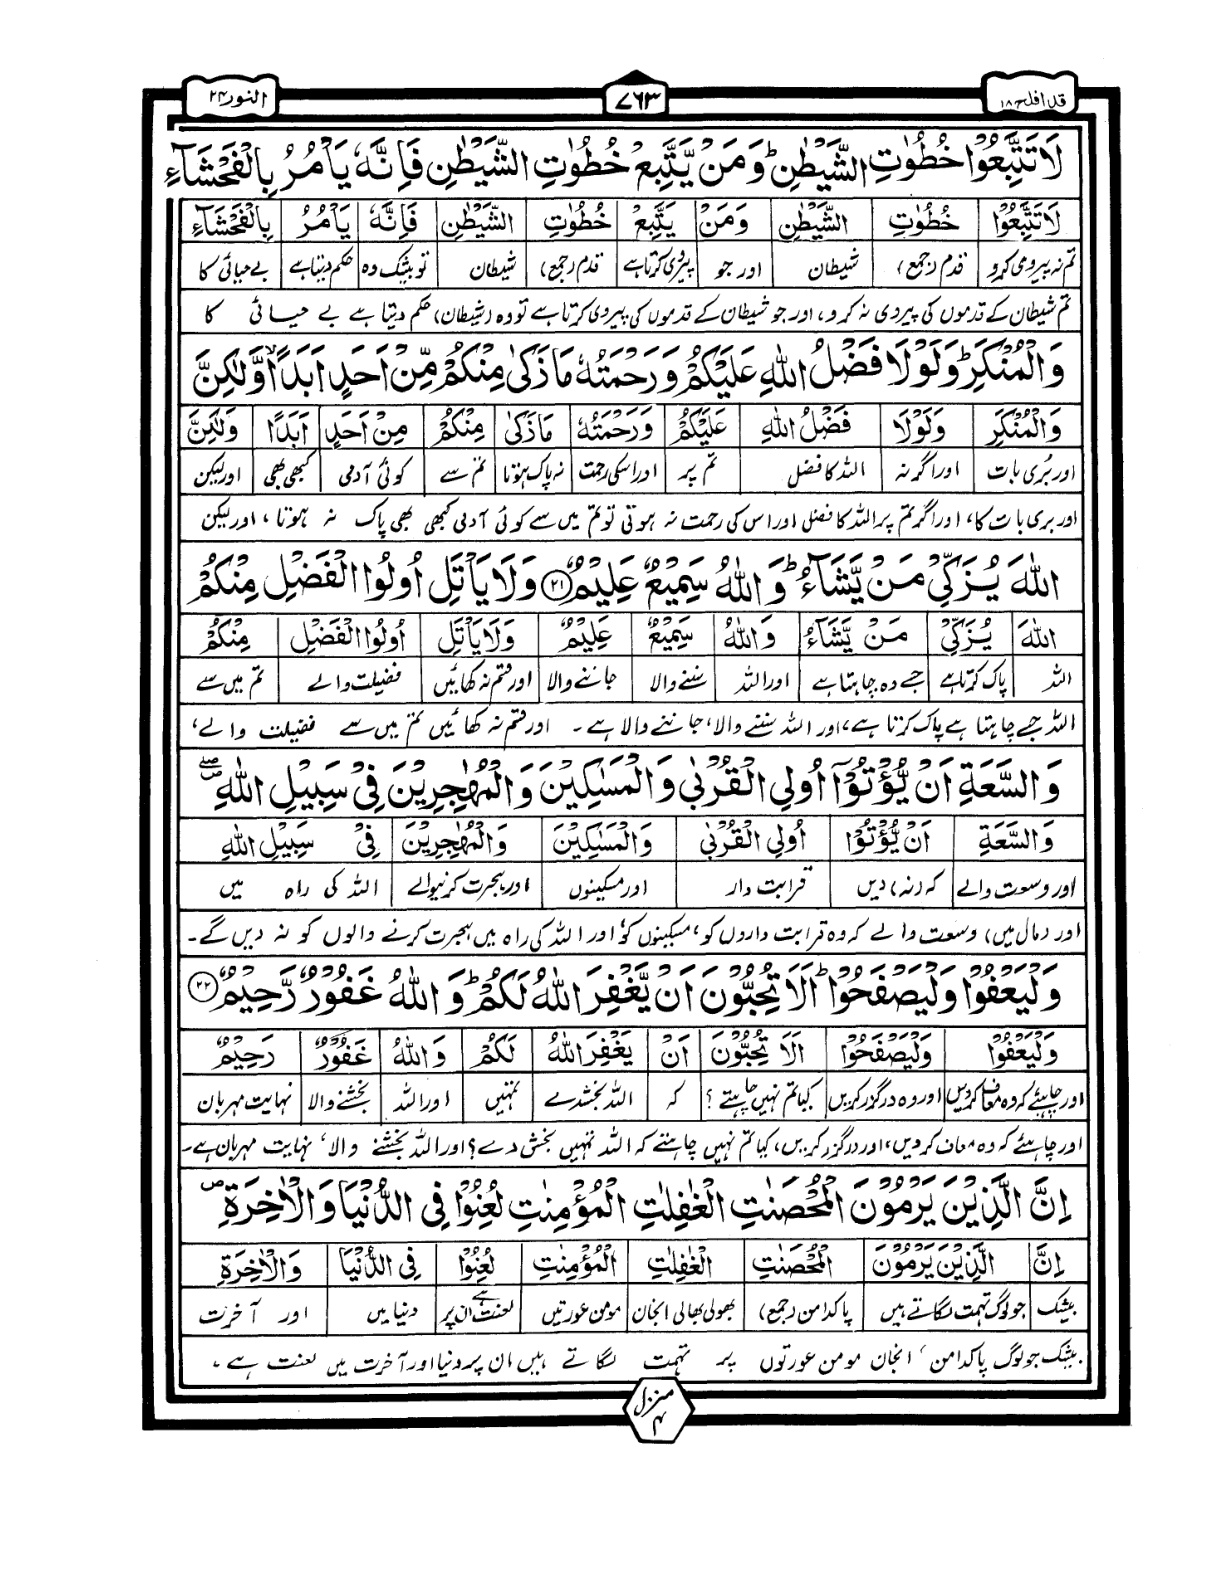 قد افلح ١٨
٧٦٣
النور ٢٤
لَا تَتَّبِعُوْا خُطُوٰتِ الشَّيْطٰنِ ؕ وَمَنْ يَّتَّبِعْ خُطُوٰتِ الشَّيْطٰنِ فَاِنَّهٗ يَاْمُرُ بِالْفَحْشَآءِ
لَا تَتَّبِعُوْا خُطُوٰتِ الشَّيْطٰنِ وَمَنْ يَتَّبِعْ خُطُوٰتِ الشَّيْطٰنِ فَاِنَّهٗ يَاْمُرُ بِالْفَحْشَآءِ
تم نہ پیروی کرو قدم (جمع) شیطان اور جو پیروی کرتا ہے قدم (جمع) شیطان تو بیشک وہ حکم دیتا ہے بے حیائی کا
تم شیطان کے قدموں کی پیروی نہ کرو، اور جو شیطان کے قدموں کی پیروی کرتا ہے تو وہ (شیطان) حکم دیتا ہے بے حیائی کا
وَالْمُنْكَرِ ؕ وَلَوْلَا فَضْلُ اللّٰهِ عَلَيْكُمْ وَرَحْمَتُهٗ مَا زَكٰى مِنْكُمْ مِّنْ اَحَدٍ اَبَدًا ۙ وَّلٰكِنَّ
وَالْمُنْكَرِ وَلَوْلَا فَضْلُ اللّٰهِ عَلَيْكُمْ وَرَحْمَتُهٗ مَا زَكٰى مِنْكُمْ مِنْ اَحَدٍ اَبَدًا وَلٰكِنَّ
اور بُری بات اور اگر نہ اللہ کا فضل تم پر اور اسکی رحمت نہ پاک ہوتا تم سے کوئی آدمی کبھی بھی اور لیکن
اور بری بات کا، اور اگر تم پر اللہ کا فضل اور اس کی رحمت نہ ہوتی تو تم میں سے کوئی آدمی کبھی بھی پاک نہ ہوتا، اور لیکن
اللّٰهَ يُزَكِّىْ مَنْ يَّشَآءُ ؕ وَاللّٰهُ سَمِيْعٌ عَلِيْمٌ ﴿٢١﴾ وَلَا يَاْتَلِ اُولُوا الْفَضْلِ مِنْكُمْ
اللّٰهَ يُزَكِّىْ مَنْ يَّشَآءُ وَاللّٰهُ سَمِيْعٌ عَلِيْمٌ وَلَا يَاْتَلِ اُولُوا الْفَضْلِ مِنْكُمْ
اللہ پاک کرتا ہے جسے وہ چاہتا ہے اور اللہ سننے والا جاننے والا اور قسم نہ کھائیں فضیلت والے تم میں سے
اللہ جسے چاہتا ہے پاک کرتا ہے، اور اللہ سننے والا، جاننے والا ہے۔ اور قسم نہ کھائیں تم میں سے فضیلت والے،
وَالسَّعَةِ اَنْ يُّؤْتُوْٓا اُولِى الْقُرْبٰى وَالْمَسٰكِيْنَ وَالْمُهٰجِرِيْنَ فِىْ سَبِيْلِ اللّٰهِ ۖ
وَالسَّعَةِ اَنْ يُّؤْتُوْا اُولِى الْقُرْبٰى وَالْمَسٰكِيْنَ وَالْمُهٰجِرِيْنَ فِىْ سَبِيْلِ اللّٰهِ
اور وسعت والے کہ (نہ) دیں قرابت دار اور مسکینوں اور ہجرت کرنیوالے اللہ کی راہ میں
اور (مال میں) وسعت والے کہ وہ قرابت داروں کو، مسکینوں کو اور اللہ کی راہ میں ہجرت کرنے والوں کو نہ دیں گے۔
وَلْيَعْفُوْا وَلْيَصْفَحُوْا ؕ اَلَا تُحِبُّوْنَ اَنْ يَّغْفِرَ اللّٰهُ لَكُمْ ؕ وَاللّٰهُ غَفُوْرٌ رَّحِيْمٌ ﴿٢٢﴾
وَلْيَعْفُوْا وَلْيَصْفَحُوْا اَلَا تُحِبُّوْنَ اَنْ يَغْفِرَ اللّٰهُ لَكُمْ وَاللّٰهُ غَفُوْرٌ رَحِيْمٌ
اور چاہئے کہ وہ معاف کردیں اور وہ درگزر کریں کیا تم نہیں چاہتے؟ کہ اللہ بخشدے تمہیں اور اللہ بخشنے والا نہایت مہربان
اور چاہئے کہ وہ معاف کر دیں، اور درگزر کریں، کیا تم نہیں چاہتے کہ اللہ تمہیں بخش دے؟ اور اللہ بخشنے والا، نہایت مہربان ہے۔
اِنَّ الَّذِيْنَ يَرْمُوْنَ الْمُحْصَنٰتِ الْغٰفِلٰتِ الْمُؤْمِنٰتِ لُعِنُوْا فِى الدُّنْيَا وَالْاٰخِرَةِ ۪
اِنَّ الَّذِيْنَ يَرْمُوْنَ الْمُحْصَنٰتِ الْغٰفِلٰتِ الْمُؤْمِنٰتِ لُعِنُوْا فِى الدُّنْيَا وَالْاٰخِرَةِ
بیشک جو لوگ تہمت لگاتے ہیں پاکدامن (جمع) بھولی بھالی انجان مومن عورتیں لعنت ہے ان پر دنیا میں اور آخرت
بیشک جو لوگ پاکدامن، انجان مومن عورتوں پر تہمت لگاتے ہیں ان پر دنیا اور آخرت میں لعنت ہے۔
منزل ۴